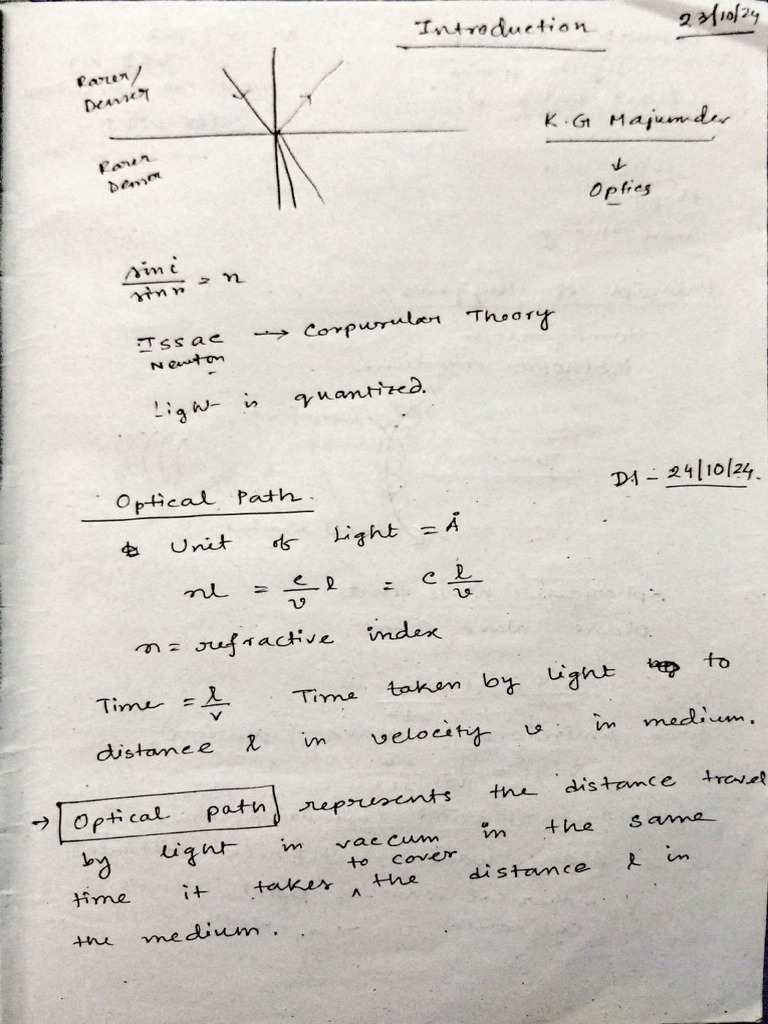 Introduction
23/10/24
Rarer/
Denser
K.G Majumder
↓
Optics
Rarer
Denser
sin i / sin r = n
Issac → Corpurular Theory
Newton
Light is quantized.
Dt - 24/10/24.
Optical Path.
Unit of Light = Å
nl = c/v l = c l/v
n = refractive index
Time = l/v Time taken by light to
distance l in velocity v in medium.
→ Optical path represents the distance travel
by light in vaccum in the same
time it takes to cover the distance l in
the medium.